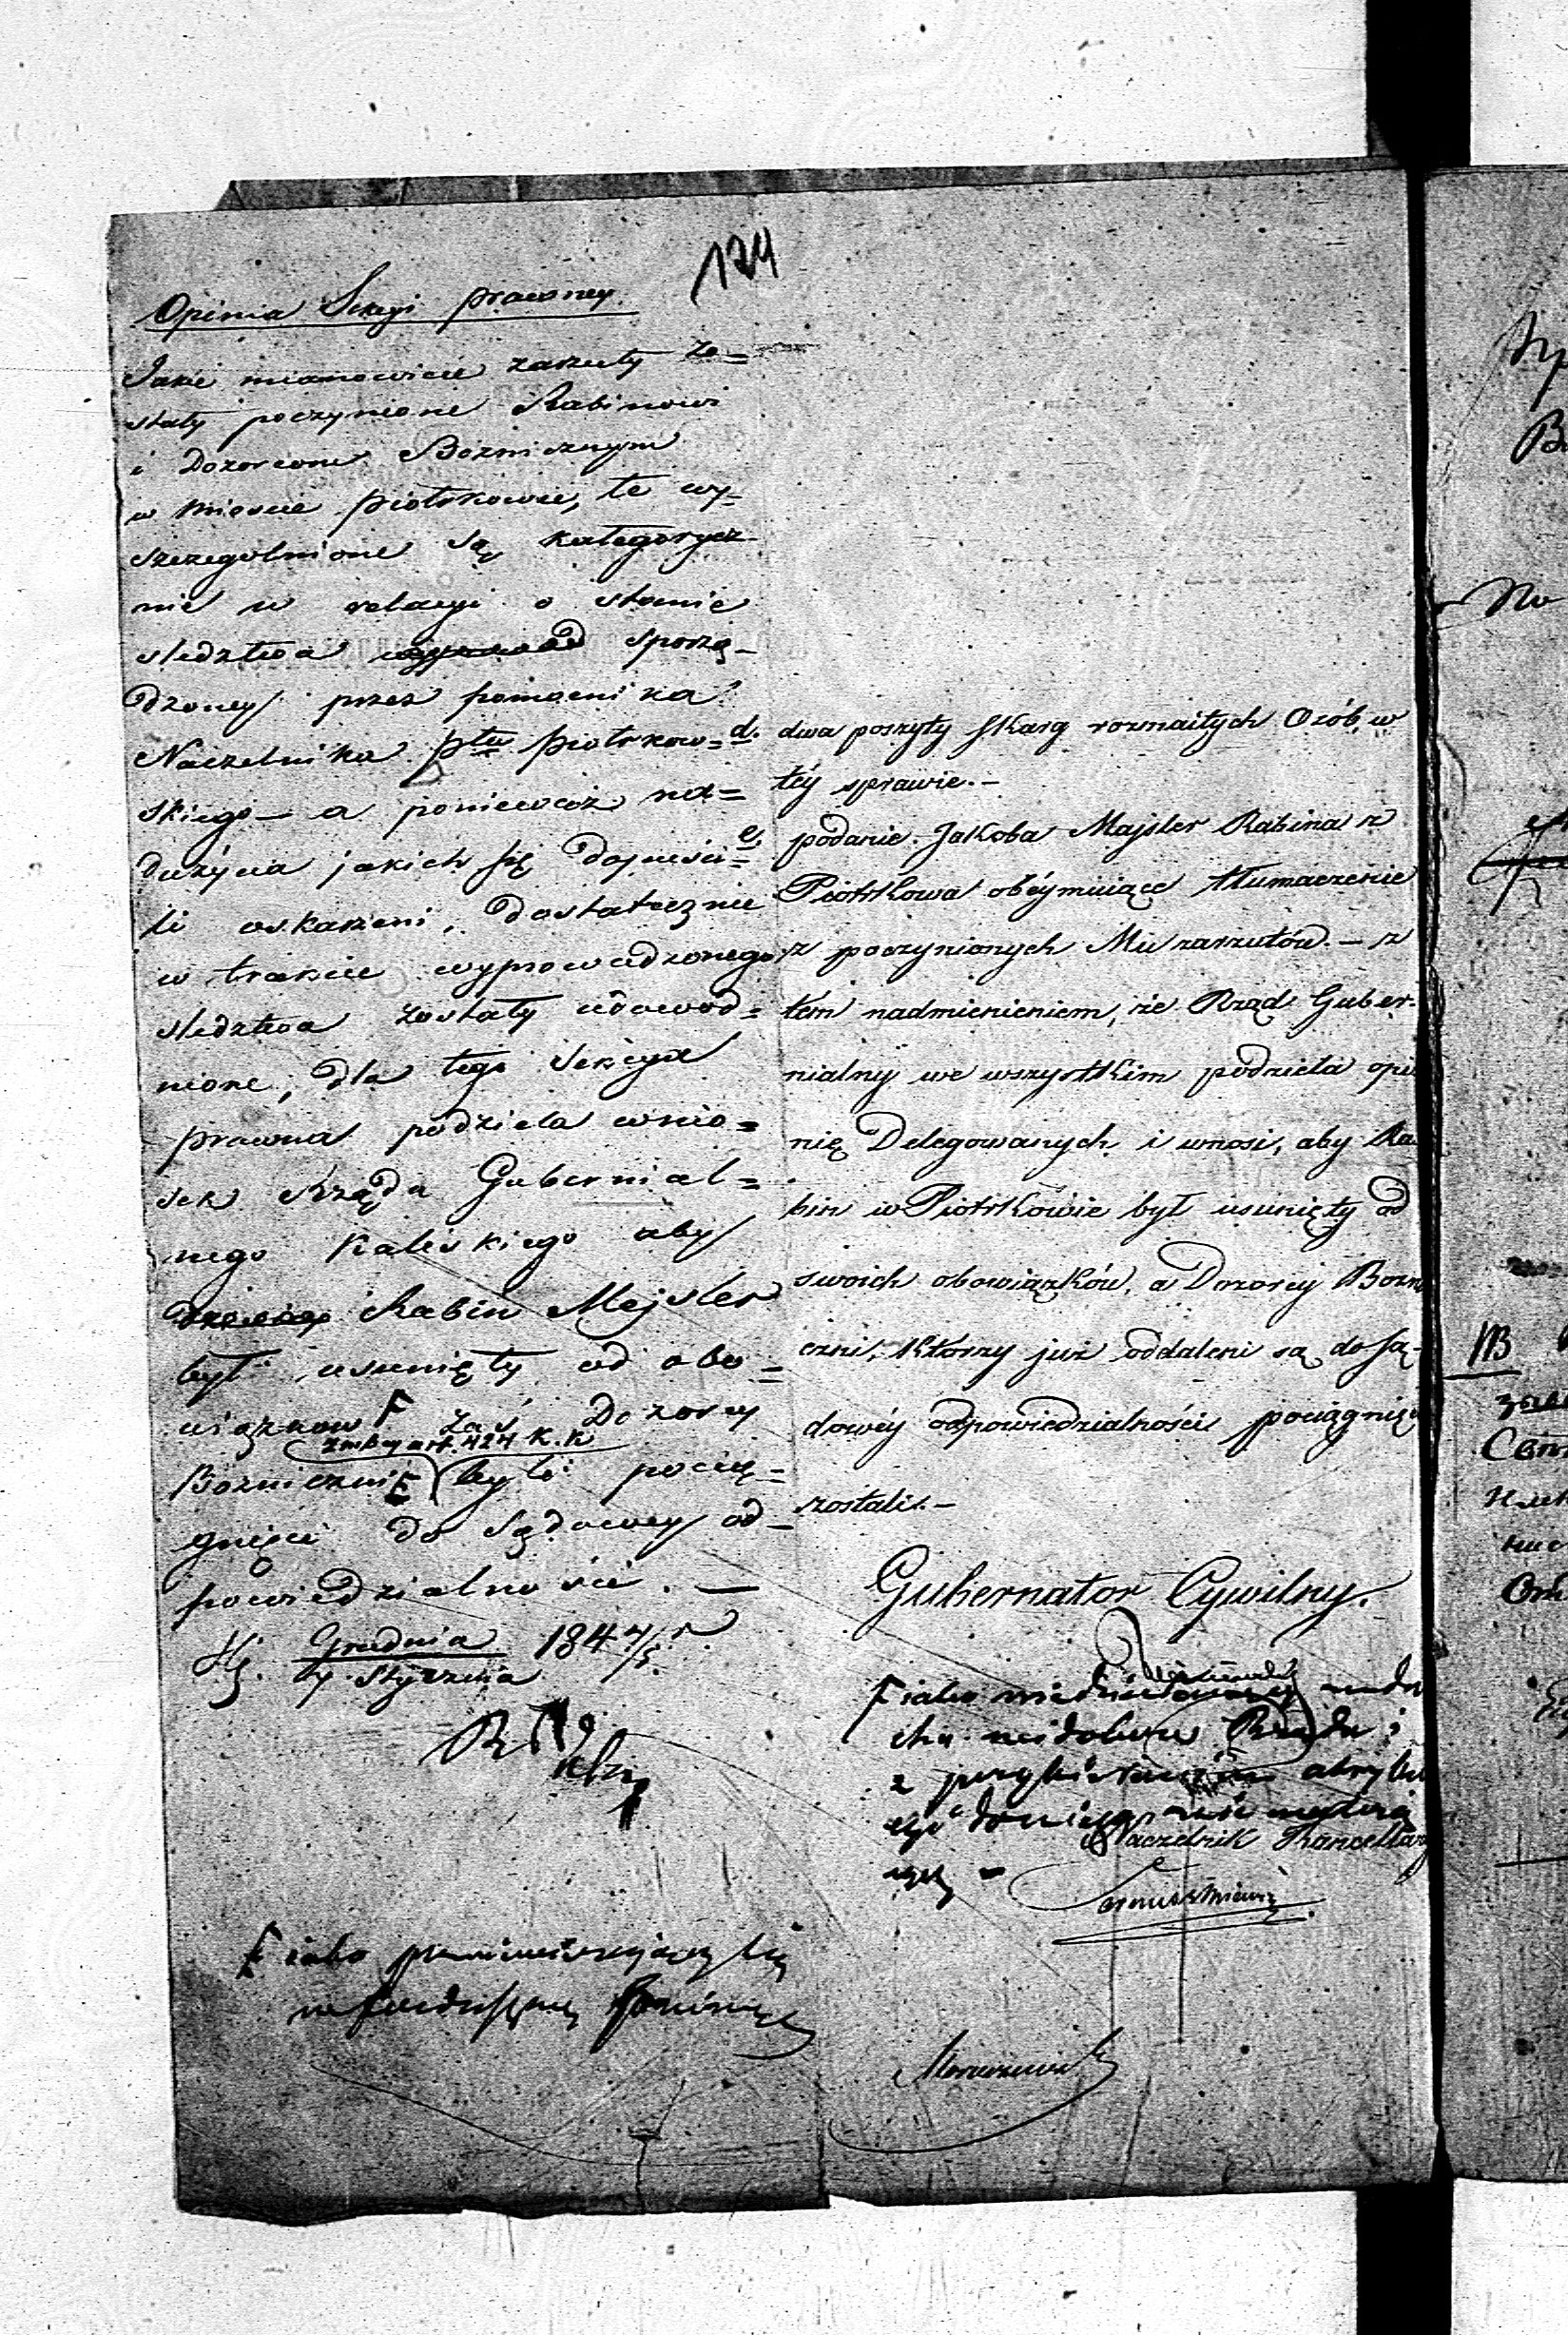 124
Opinia Sekcyi prawney.
Jakie mianowicie zarzuty zo=
stały poczynione Rabinowi
i Dozorcom Bożnicznym
w mieście Piotrkowie, te wy-
szczegolnione są kategorycz
nie w relacyi o stanie
sledztwa sporzą-
dzoney przez pomocnika
Naczelnika Ptu Piotrkow=
skiego – a ponieważ na=
dużycia jakich się dopuści=
li oskarżeni, dostatecznie
w trakcie wyprowadzonego
sledztwa zostały udowod=
nione, dla tego Sekcya
prawna podziela wnio=
sek Rządu Gubernial=
nego Kaliskiego aby
Rabin Majsler
był usunięty od obo=
wiązkow F zaś Dozorcy
z mocy art. 424 K. K
Bożniczni F byli pocią=
gnięci do Sądowey od-
powiedzialności. —
Grudnia 184 4/5 r
Stycznia
F iako
d. dwa poszyty skarg rozmaitych Osób w
téy sprawie. –
e, podanie Jakoba Majsler Rabina z
Piotrkowa obéymuiące tłumaczenie
z poczynionych Mu zarzutów. – z
tem nadmienieniem, że Rząd Guber-
nialny we wszystkim podziela opi
nię Delegowanych i wnosi, aby Ra
bin w Piotrkowie był usunięty od
swoich obowiązków, a Dozorcy Bożn
czni, którzy już oddaleni są do Są-
dowéy odpowiedzialności pociągnię
zostali. –
Gubernator Cywilny.
F iako
Rządu i
z
Naczelnik Kancellar
NB